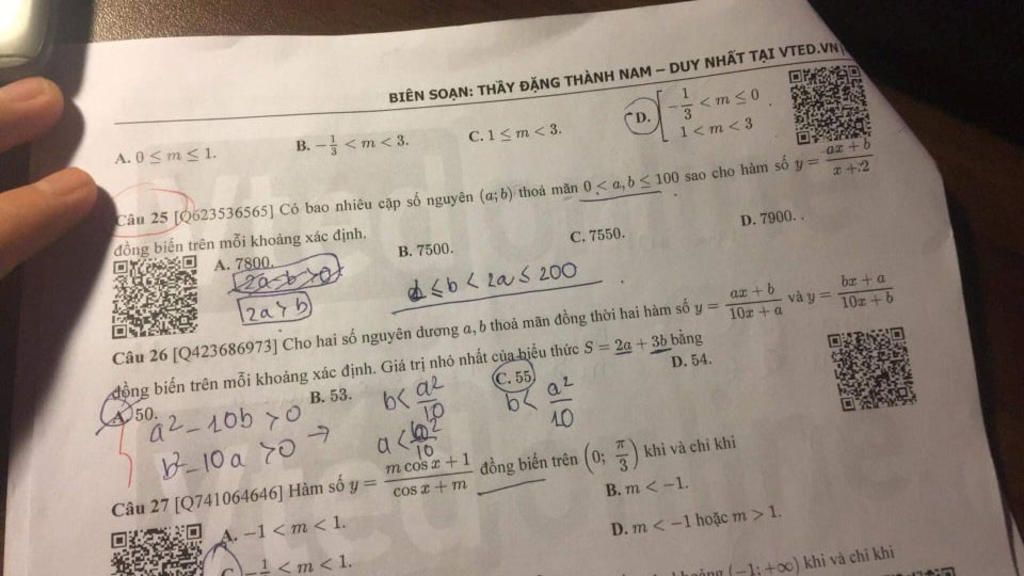 BIÊN SOẠN: THẦY ĐẶNG THÀNH NAM – DUY NHẤT TẠI VTED.VN
A. 0 ≤ m ≤ 1. B. -1/3 < m < 3. C. 1 ≤ m < 3. D. [ -1/3 < m ≤ 0 . 1 < m < 3
Câu 25 [Q623536565] Có bao nhiêu cặp số nguyên (a;b) thoả mãn 0 < a, b ≤ 100 sao cho hàm số y = (ax + b)/(x + 2)
đồng biến trên mỗi khoảng xác định.
A. 7800. B. 7500. C. 7550. D. 7900. .
2a-b>0
2a>b
1 ≤ b < 2a ≤ 200
Câu 26 [Q423686973] Cho hai số nguyên dương a, b thoả mãn đồng thời hai hàm số y = (ax + b)/(10x + a) và y = (bx + a)/(10x + b)
đồng biến trên mỗi khoảng xác định. Giá trị nhỏ nhất của biểu thức S = 2a + 3b bằng
A. 50. B. 53. C. 55 D. 54.
a² - 10b > 0 b < a²/10 b < a²/10
b² - 10a > 0 → a < b²/10
Câu 27 [Q741064646] Hàm số y = (m cos x + 1)/(cos x + m) đồng biến trên (0; π/3) khi và chỉ khi
A. -1 < m < 1. B. m < -1.
C. -1/ < m < 1. D. m < -1 hoặc m > 1.
khoảng (-1; +∞) khi và chỉ khi
Vted online